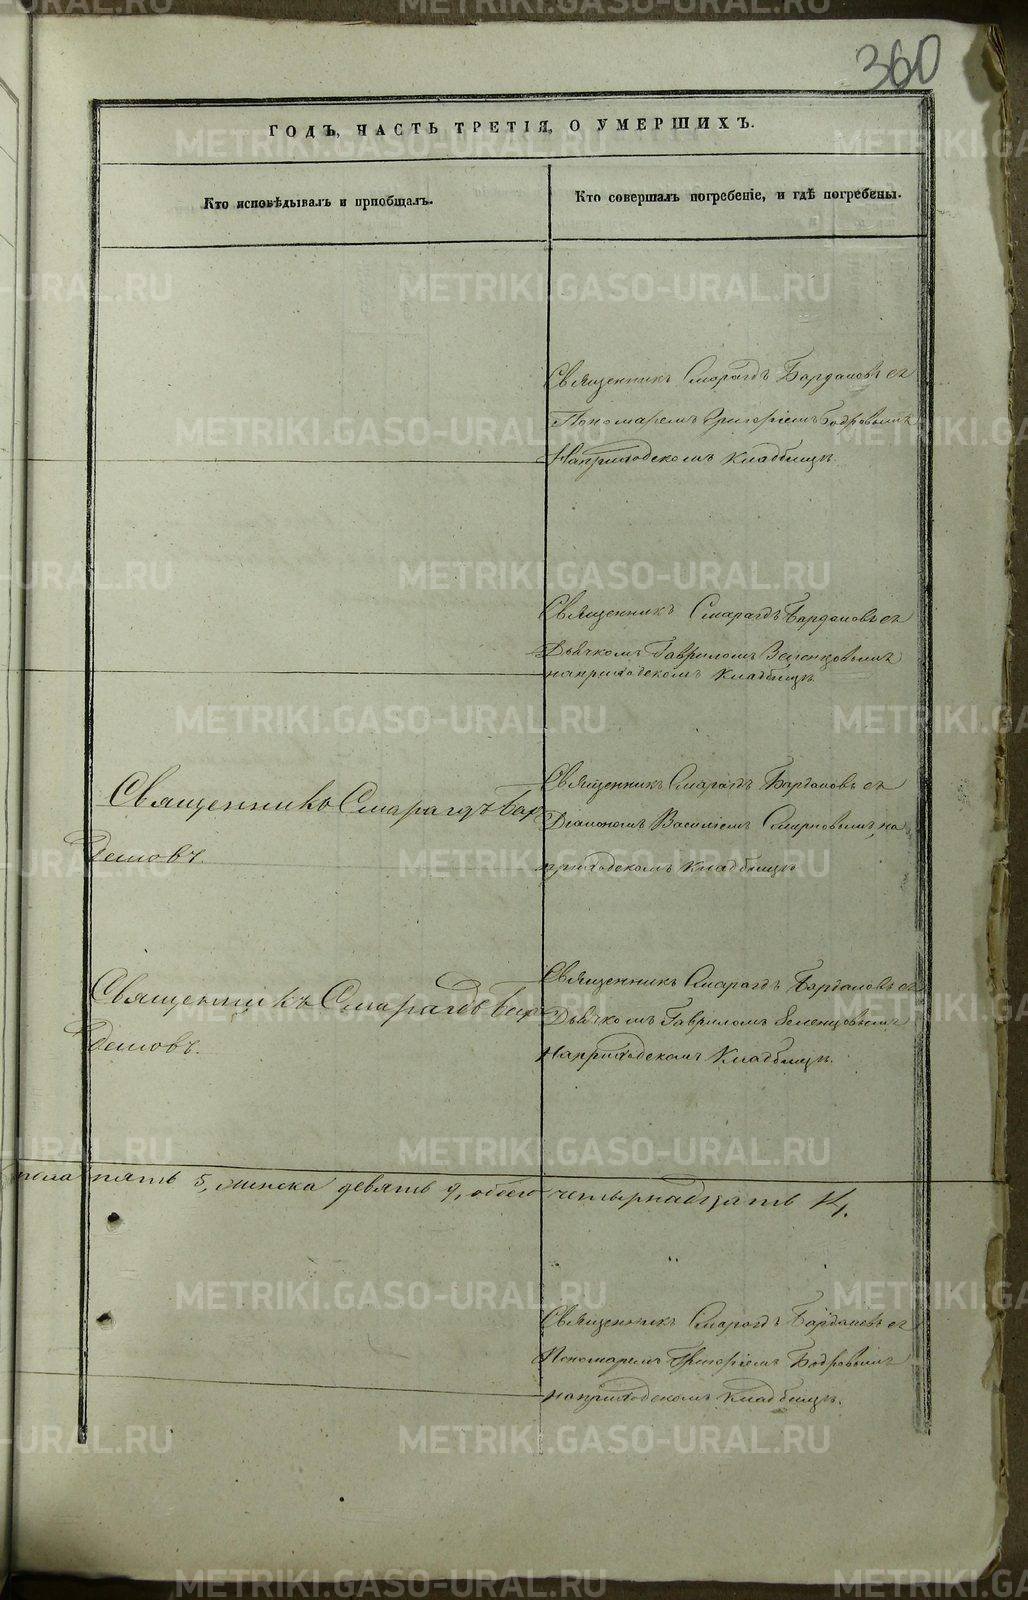 360
ГОДЪ, ЧАСТЬ ТРЕТІЯ, О УМЕРШИХЪ.
Кто исповѣдывалъ и пріобщалъ.
Кто совершалъ погребеніе, и гдѣ погребены.
Священникъ Смарагдъ съ
Пономаремъ Григоріемъ Бодровымъ
Наприходскомъ Кладбищѣ.
Священникъ Смарагдъ съ
Дьячкомъ Гавриломъ Зеленцовымъ
наприходскомъ Кладбищѣ.
Священникъ Смарагдъ
Священникъ Смарагдъ съ
Діакономъ Василіемъ Смирновымъ, на
приходскомъ Кладбищѣ
Священникъ Смарагдъ
Священникъ Смарагдъ съ
Дьячкомъ Гавриломъ Зеленцовымъ
Наприходскомъ Кладбищѣ.
пола пять 5, женска девять 9, обоего четырнадцать 14.
Священникъ Смарагдъ съ
Пономаремъ Григоріемъ Бодровымъ
наприходскомъ Кладбищѣ.
METRIKI.GASO-URAL.RU